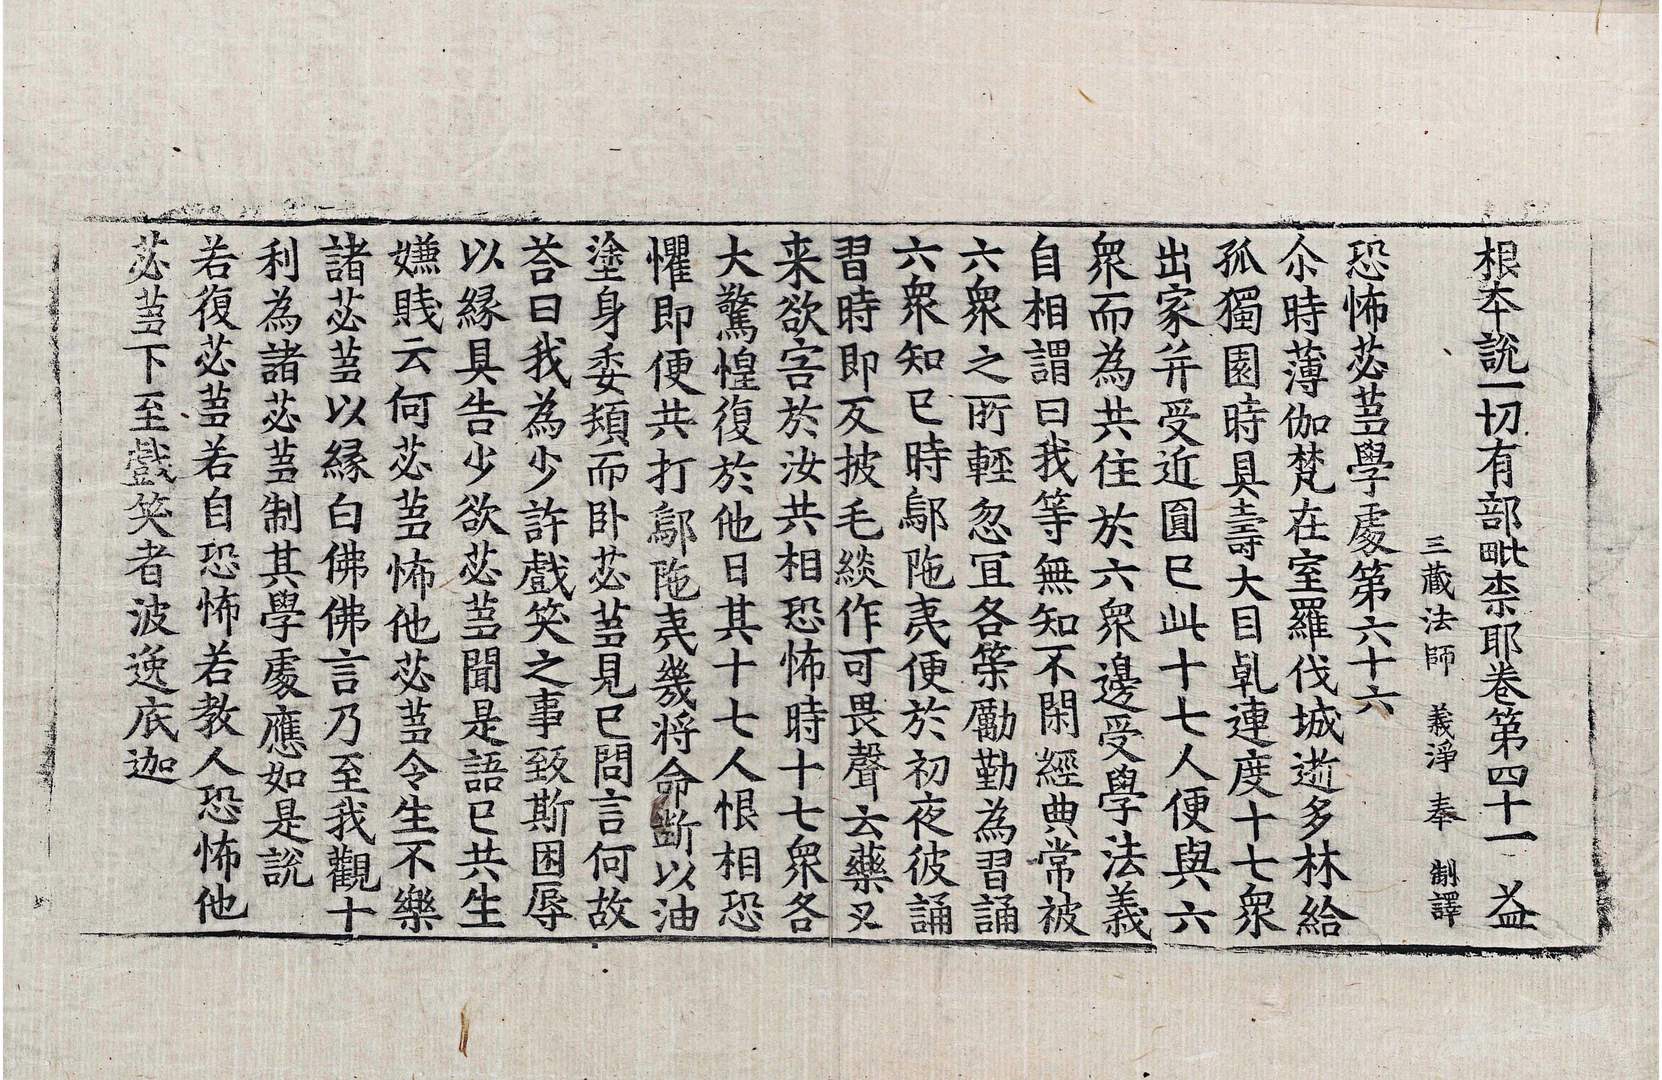 根本說一切有部毗柰耶卷第四十一 益
三藏法師 義淨 奉 制譯
恐怖苾蒭學處第六十六
尒時薄伽梵在室羅伐城逝多林給
孤獨園時具壽大目乹連度十七衆
出家并受近圓已此十七人便與六
衆而為共住於六衆邊受學法義
自相謂曰我等無知不閑經典常被
六衆之所輕忽冝各策勵勤為習誦
六衆知已時鄔陁夷便於初夜彼誦
習時即反披毛緂作可畏聲云藥叉
来欲害於汝共相恐怖時十七衆各
大驚惶復於他日其十七人恨相恐
懼即便共打鄔陁夷幾將命斷以油
塗身委頓而卧苾蒭見已問言何故
荅曰我為少許戲笑之事致斯困辱
以緣具告少欲苾蒭聞是語已共生
嫌賤云何苾蒭怖他苾蒭令生不樂
諸苾蒭以緣白佛佛言乃至我觀十
利為諸苾蒭制其學處應如是說
若復苾蒭若自恐怖若教人恐怖他
苾蒭下至戲笑者波逸底迦